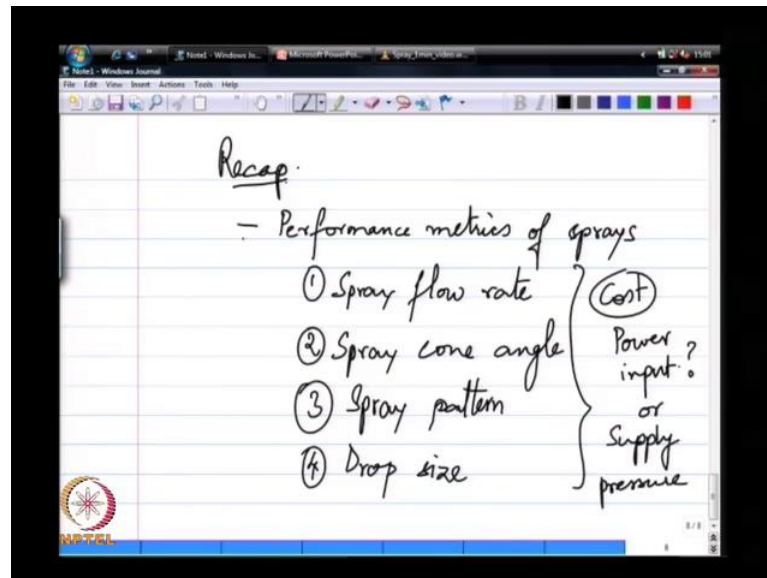 Note1 - Windows Jo...
Microsoft PowerPoi...
Spray_1min_video.w...
15:01
Note1 - Windows Journal
File Edit View Insert Actions Tools Help
B I
Recap.
- Performance metrics of sprays
① Spray flow rate
② Spray cone angle
③ Spray pattern
④ Drop size
Cost
Power
input ?
or
Supply
pressure
8 / 8
8
NPTEL